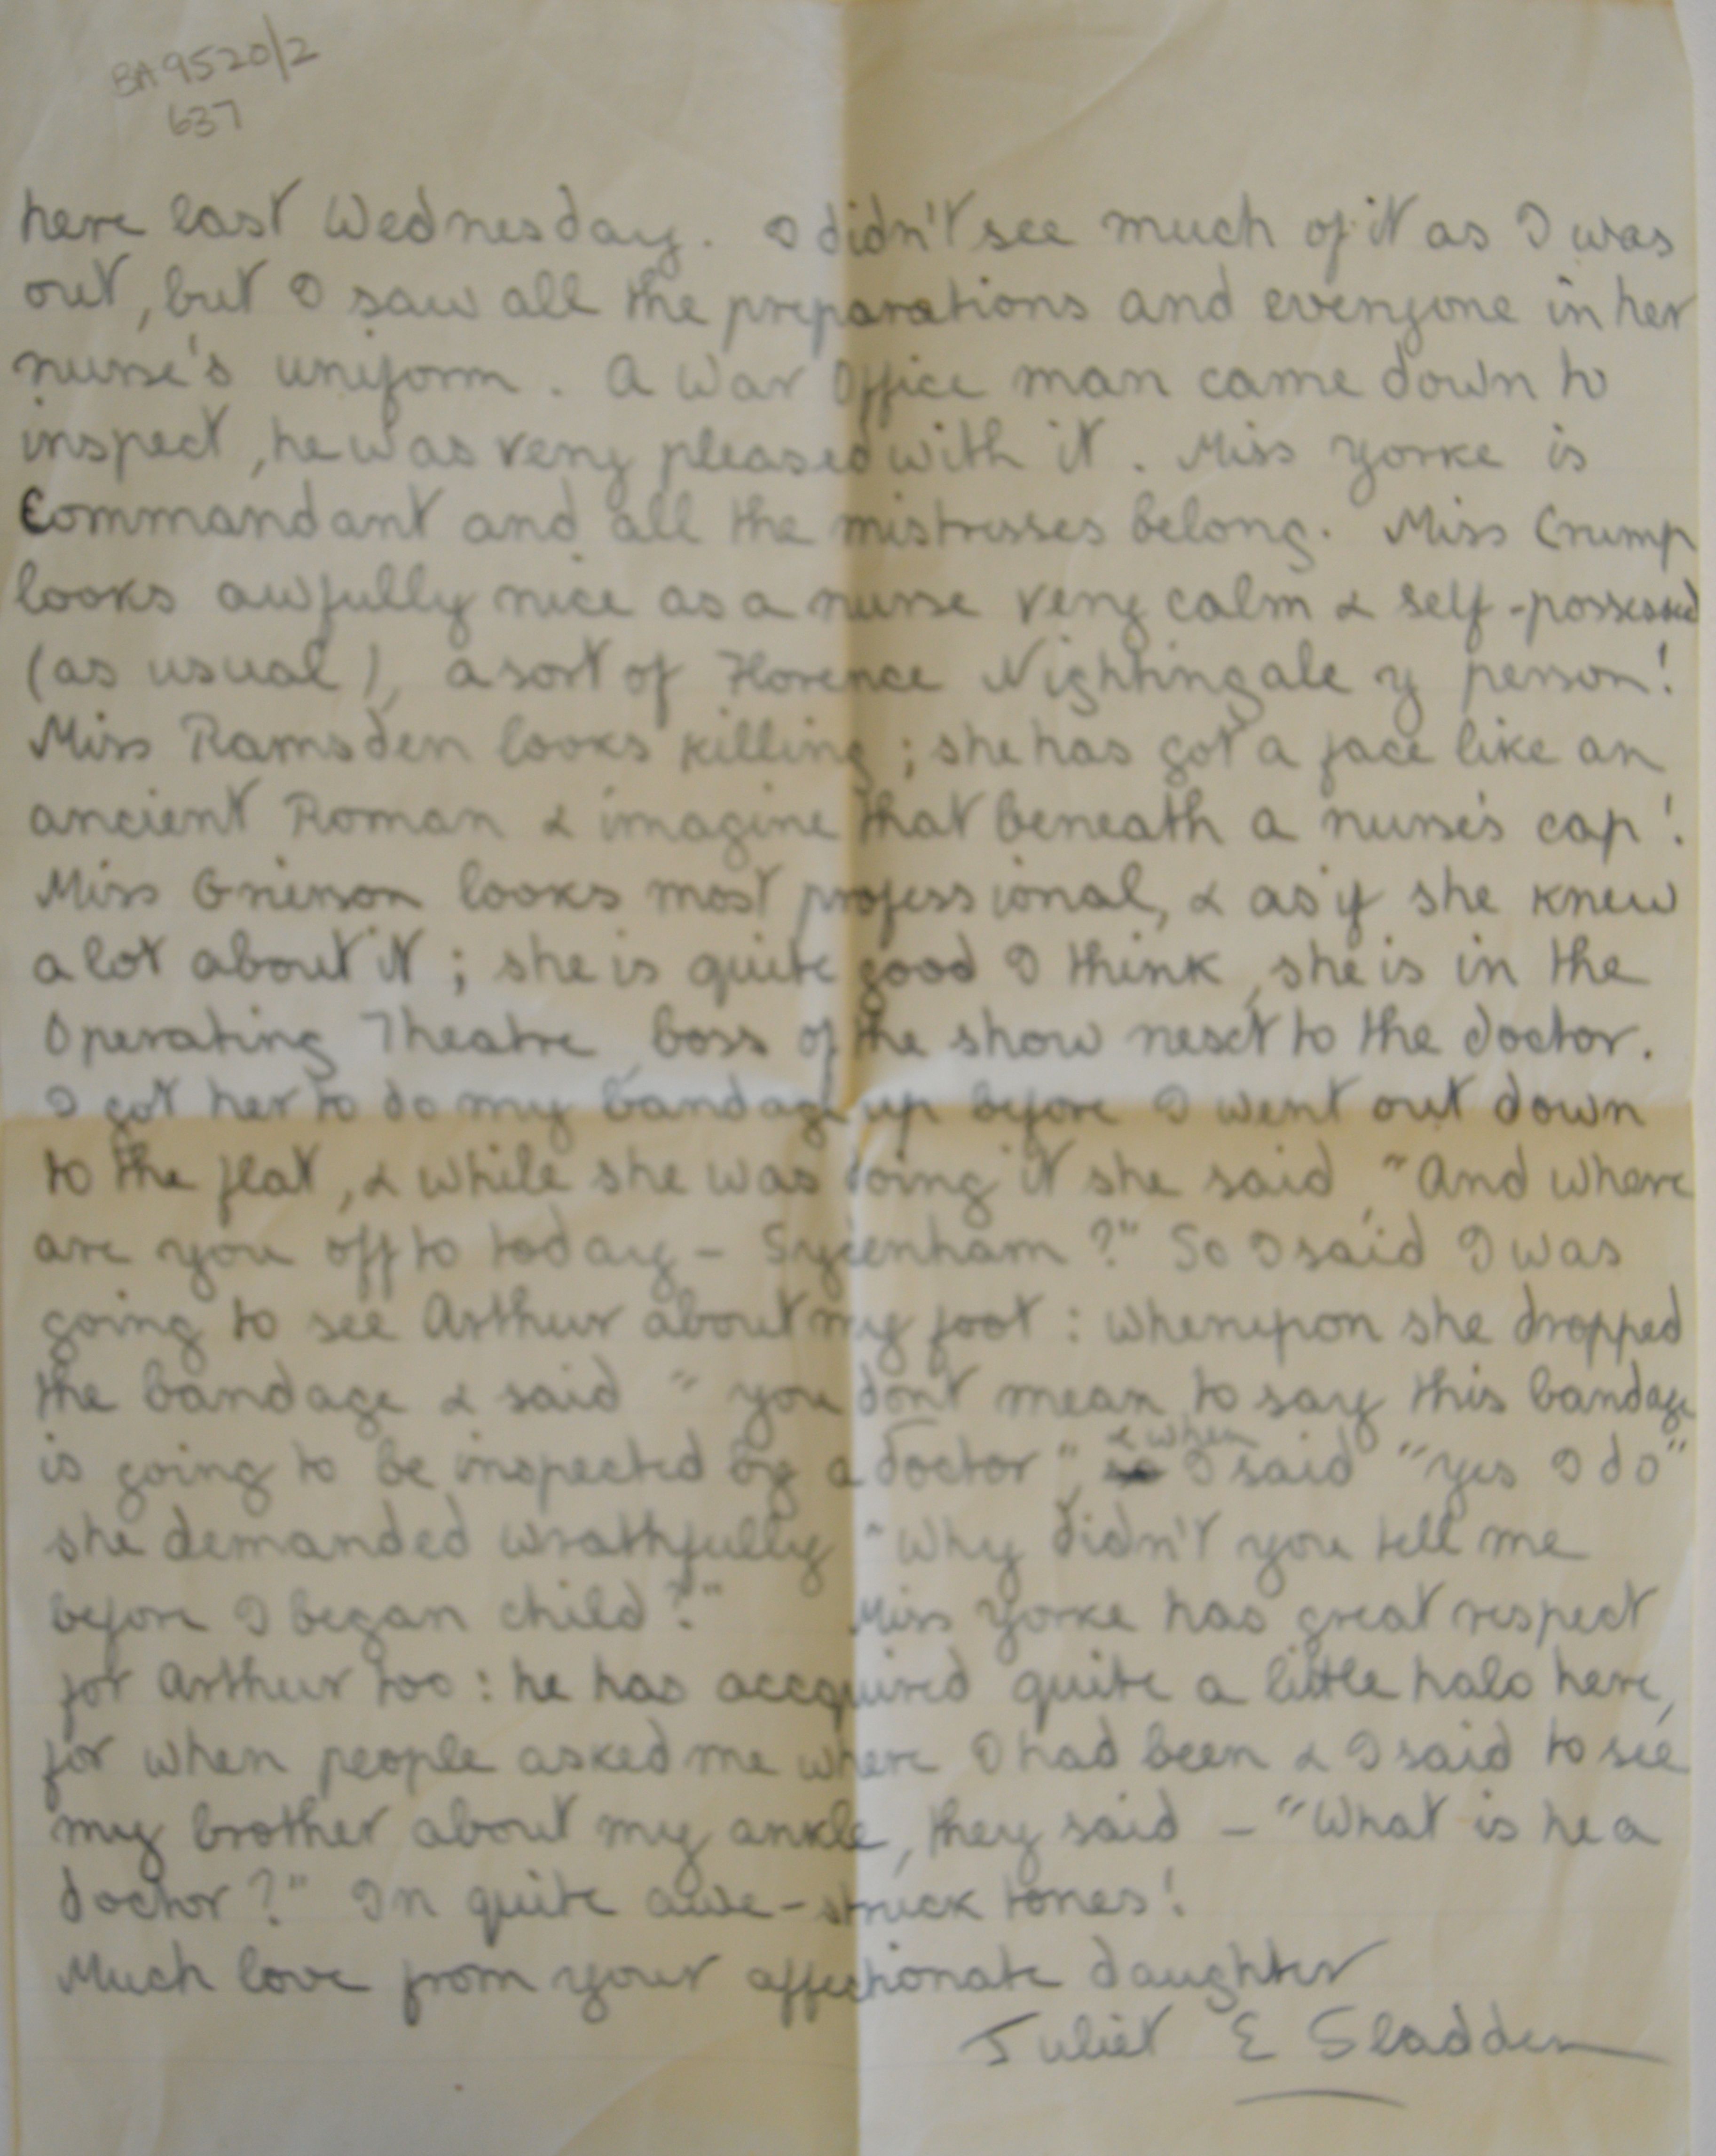 BA9520/2
637
here last Wednesday. I didn't see much of it as I was
out, but I saw all the preparations and everyone in her
nurse's uniform. A War Office man came down to
inspect, he was very pleased with it. Miss Yorke is
Commandant and all the mistresses belong. Miss Crump
looks awfully nice as a nurse very calm & self-possessed
(as usual), a sort of Florence Nightingale y person!
Miss Ramsden looks killing; she has got a face like an
ancient Roman & imagine that beneath a nurse's cap!
Miss Grierson looks most professional, & as if she knew
a lot about it; she is quite good I think, she is in the
Operating Theatre, boss of the show next to the doctor.
I got her to do my bandage up before I went out down
to the flat, & while she was doing it she said, "And where
are you off to today - Sydenham?" So I said I was
going to see Arthur about my foot: whereupon she dropped
the bandage & said "you don't mean to say this bandage
is going to be inspected by a doctor", & when I said "yes I do"
she demanded wrathfully "Why didn't you tell me
before I began child?" Miss Yorke has great respect
for Arthur too: he has accquired quite a little halo here,
for when people asked me where I had been & I said to see
my brother about my ankle, they said - "What is he a
doctor?" In quite awe-struck tones!
Much love from your affectionate daughter
Juliet E Sladden